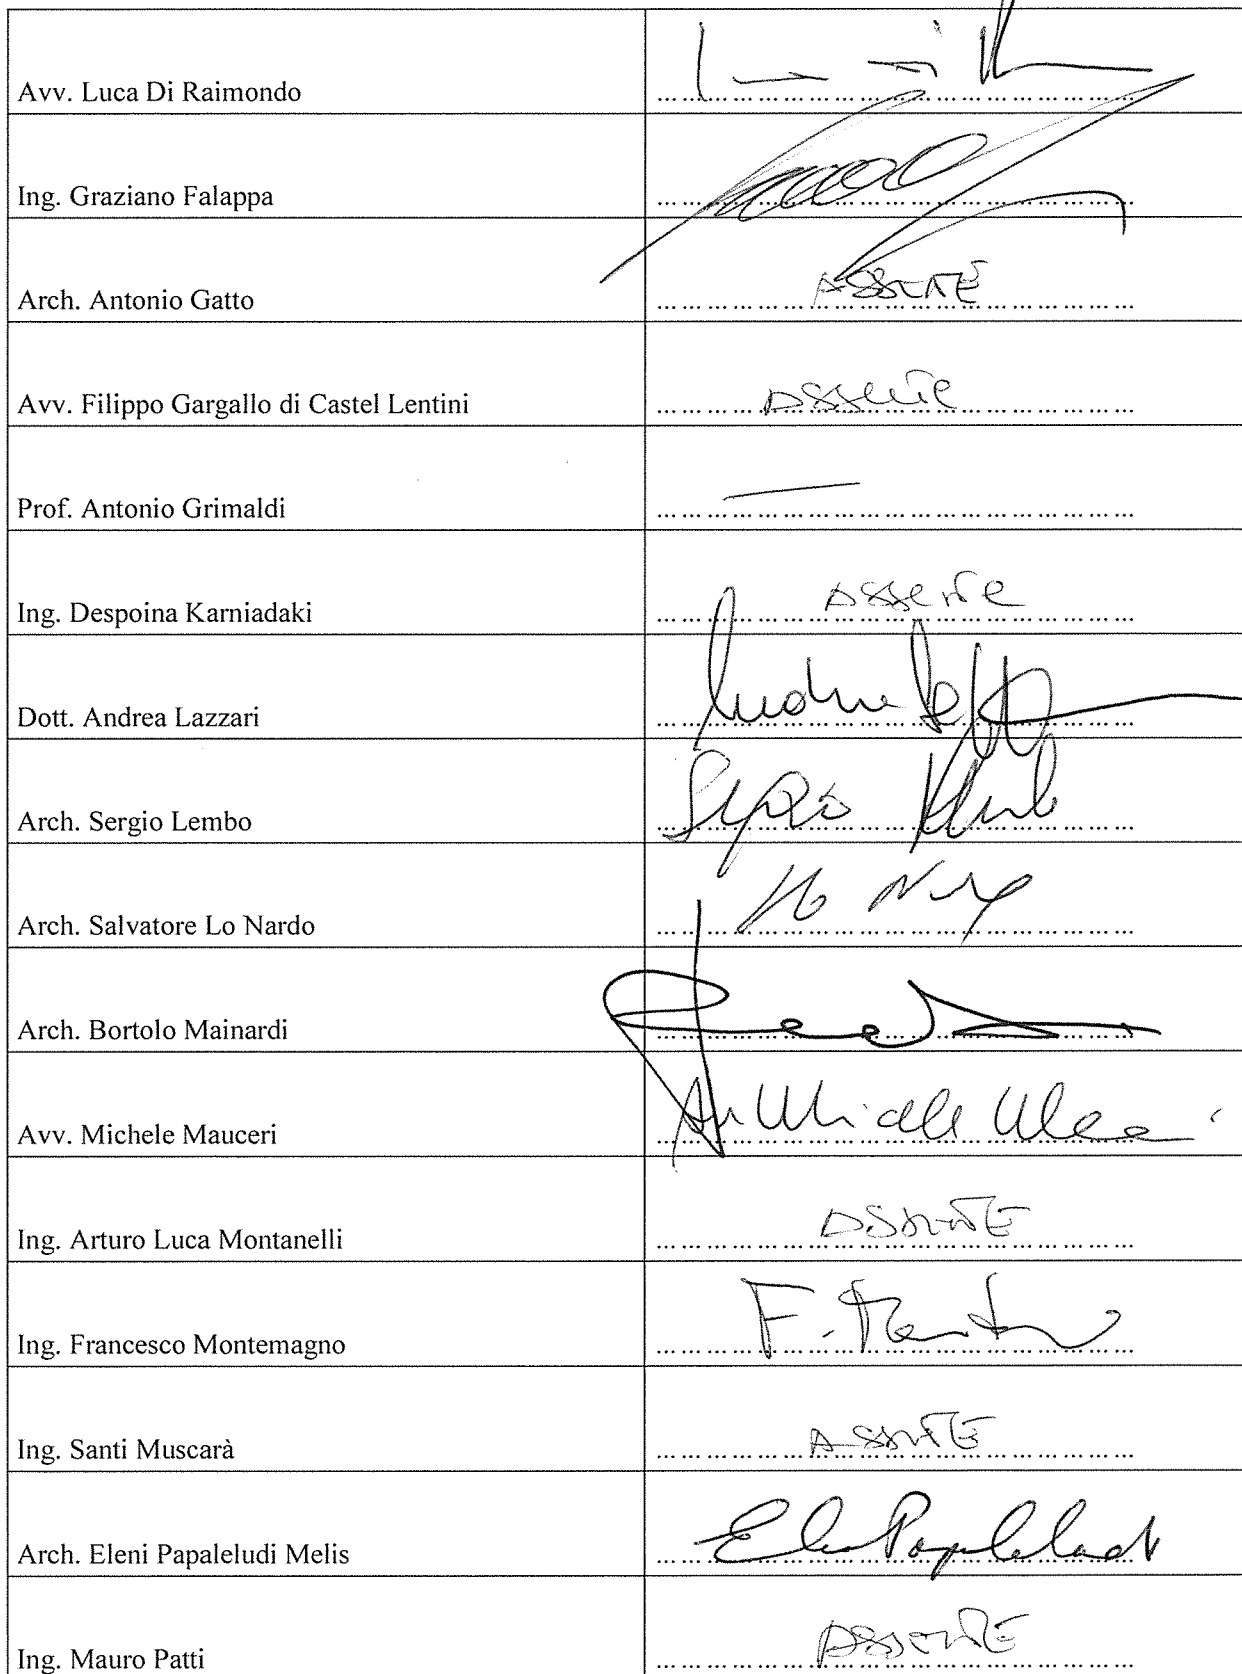 Avv. Luca Di Raimondo
Ing. Graziano Falappa
Arch. Antonio Gatto ASSENTE
Avv. Filippo Gargallo di Castel Lentini Assente
Prof. Antonio Grimaldi
Ing. Despoina Karniadaki Assente
Dott. Andrea Lazzari
Arch. Sergio Lembo
Arch. Salvatore Lo Nardo
Arch. Bortolo Mainardi
Avv. Michele Mauceri
Ing. Arturo Luca Montanelli ASSENTE
Ing. Francesco Montemagno
Ing. Santi Muscarà ASSENTE
Arch. Eleni Papaleludi Melis
Ing. Mauro Patti ASSENTE